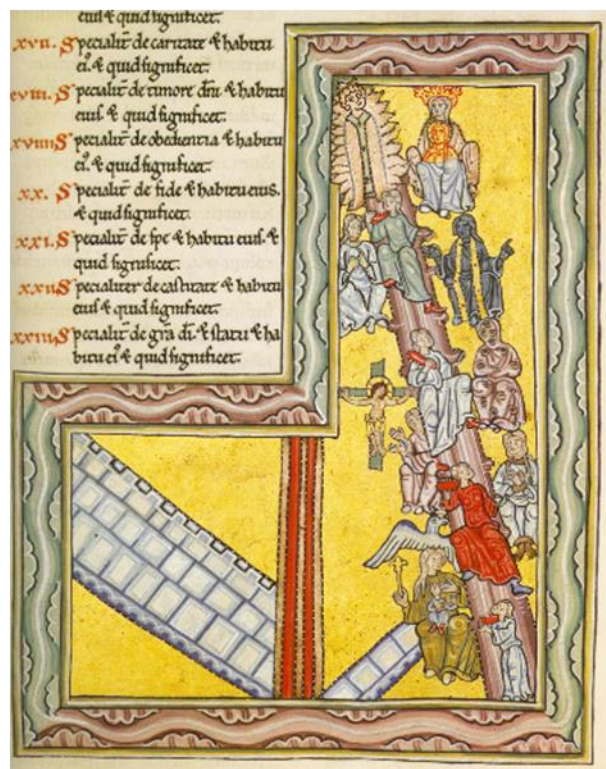 eius ⁊ quid significet.
xvii. Specialiṫ de caritate ⁊ habitu
ei᷒. ⁊ quid significet.
xviii. Specialiṫ de timore dñi ⁊ habitu
eius ⁊ quid significet.
xviiii Specialiṫ de obedientia ⁊ habitu
ei᷒. ⁊ quid significet.
xx. Specialiṫ de fide ⁊ habitu eius.
⁊ quid significet.
xxi. Specialiṫ de spe ⁊ habitu eius. ⁊
quid significet.
xxii Specialiter de castitate ⁊ habitu
eius ⁊ quid significet.
xxiii Specialiṫ de gr̃a dı̃ ⁊ statu ⁊ ha
bitu ei᷒ ⁊ quid significet.